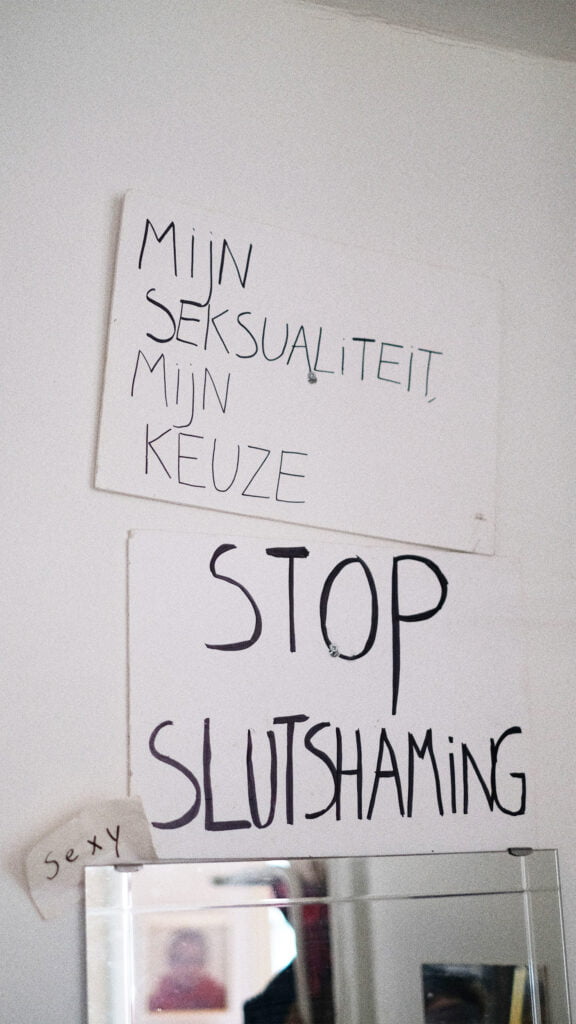 MIJN
SEKSUALITEIT,
MIJN
KEUZE
STOP
SLUTSHAMING
sexy